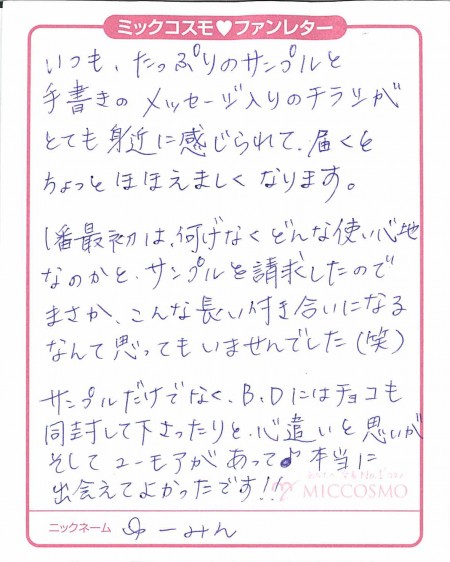 ミックコスモ♥ファンレター
いつも、たっぷりのサンプルと
手書きの メッセージ入りのチラシが
とても 身近に感じられて、届くと
ちょっと ほほえましく なります。
1番最初は、何げなく どんな使い心地
なのかと、サンプルを請求したので
まさか、こんな長い付き合いになる
なんて 思ってもいませんでした(笑)
サンプルだけでなく、B.Dにはチョコも
同封して下さったりと、心遣いと思いが
そして ユーモアが あって♪ 本当に
出会えてよかったです!!
MICCOSMO
ニックネーム ゆーみん